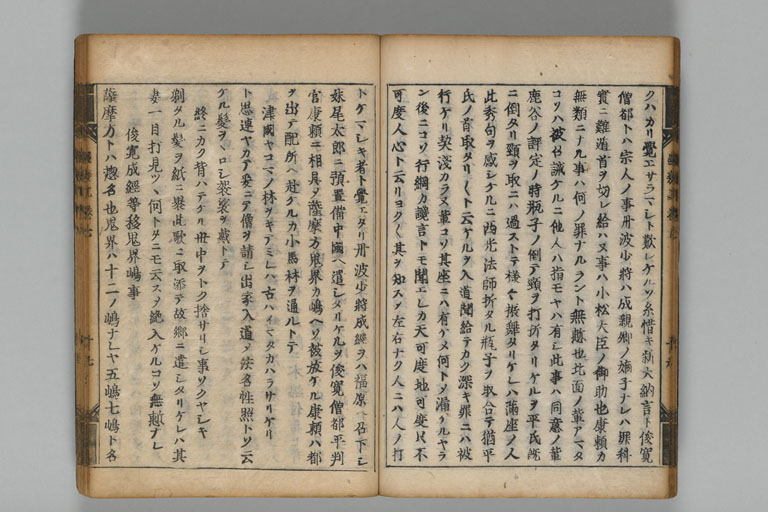 クハカリ覺エサラマシト歎シケルソ糸惜キ新大納言ト俊寛
僧都トハ宗人ノ事丹波少將ハ成親卿ノ嫡子ナレハ罪科
實ニ難遁首ヲ切レ給ハヌ事ハ小松大臣ノ御助也康頼カ
無類ニナル事ハ何ノ罪ナルラント無慙也北面ノ輩アマタ
コソハ被レ誡ケルニ他人ハ指モヤハ有シ此事ハ同意ノ輩
鹿谷ノ評定ノ時瓶子ノ倒テ頸ヲ打折タリケルヲ平氏既
ニ倒タリ頸ヲ取ニハ過ストテ様々振舞タリケレハ滿座ノ人
此秀句ヲ感シケルニ西光法師折タル瓶子ヲ取合テ猶平
氏ノ首取タリ〳〵ト云ケルヲ入道聞給テカク深キ罪ニハ被
行ケリ契淺カラヌ輩コソ其座ニハ有ケメ何トメ漏ケルヤラ
ン後ニコソ行綱カ讒言トモ聞エシカ天可度地可度只不
可度人心ト云リヨク〳〵其ヲ知スメ左右ナク人ニハ人ノ打
トケマシキ者ト覺エタリ丹波少將成經ヲハ福原ヘ召下シ
妹尾太郎ニ預置備中國ヘ遣シタリケルヲ俊寛僧都平判
官康頼ニ相具メ薩摩方鬼界カ嶋ヘソ被放ケル康頼ハ都
ヲ出テ配所ヘ赴ケルカ小馬林ヲ通ルトテ
津國ヤコマノ林ヲキテミレハ古ハイマタカハラサリケリ
ト思連ヤカテ爰ニテ僧ヲ請シ出家入道メ法名性照トソ云
ケル髪ヲヽロシ袈裟ヲ戴トテ
終ニカク背ハテケリ世中ヲトク捨サリシ事ソクヤシキ
剃タル髪ヲ紙ニ裹此歌ニ取添テ故郷ニ遣シタリケレハ其
妻一目打見ツヽ何トタニモ云ス絶入ケルコソ無慙ナレ
俊寛成經等移鬼界嶋事
薩摩方トハ惣名也鬼界ハ十二ノ嶋ナレヤ五嶋七嶋ト名